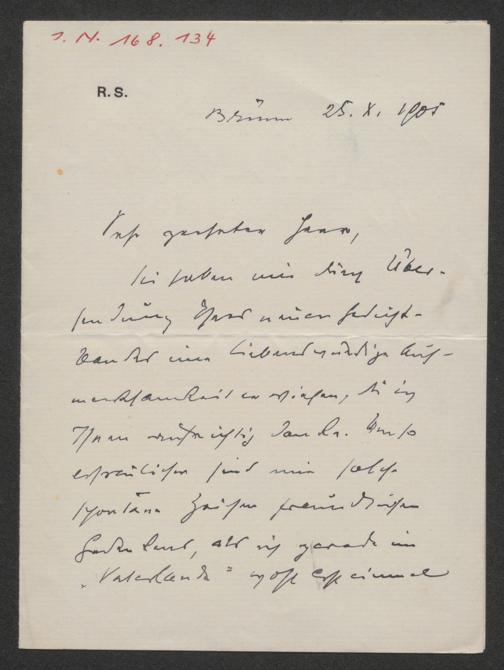 I. N. 168.134
R. S.
Brünn 25. X. 1905
Sehr geehrter Herr,
Sie haben mir durch Über-
sendung Ihres neuen Gedicht-
bandes eine liebenswürdige Auf-
merksamkeit erwiesen, die ich
Ihnen aufrichtig danke. Umso
erfreulicher sind mir solche
spontane Zeichen freundlichen
Gedenkens, als ich gerade im
„Vaterlande“ wohl erst einmal